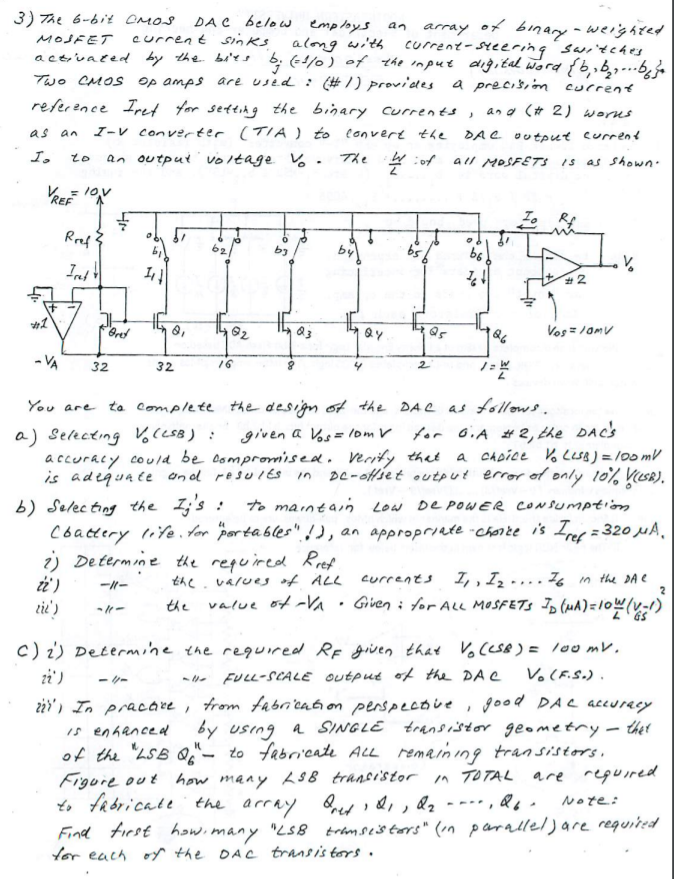 3) The 6-bit CMOS DAC below employs an array of binary-weighted
MOSFET current sinks along with current-steering switches
activated by the bits bj (=1/0) of the input digital word {b1,b2,...b6}.
Two CMOS op amps are used : (#1) provides a precision current
reference Iref for setting the binary currents, and (#2) works
as an I-V converter (TIA) to convert the DAC output current
Io to an output voltage Vo. The W/L of all MOSFETs is as shown.
VREF = 10V
Rref
Iref
#1
-VA
Qref
0 1
b1 b2 b3 b4 b5 b6
0 1
I1
I6
Q1 Q2 Q3 Q4 Q5 Q6
Io
Rf
Vo
#2
Vos = 10mV
32 32 16 8 4 2 1 = W/L
You are to complete the design of the DAC as follows.
a) Selecting Vo(LSB) : given a Vos = 10mV for O.A #2, the DAC's
accuracy could be compromised. Verify that a choice Vo(LSB) = 100mV
is adequate and results in DC-offset output error of only 10% V(LSB).
b) Selecting the Ij's : To maintain LOW DC POWER CONSUMPTION
(battery life for "portables"!), an appropriate choice is Iref = 320 µA.
i) Determine the required Rref
ii) -11- the values of ALL currents I1, I2 .... I6 in the DAC
iii) -11- the value of -VA. Given : for ALL MOSFETs ID(µA) = 10 W/L (VGS-1)²
c) i) Determine the required RF given that Vo(LSB) = 100 mV.
ii) -11- -11- FULL-SCALE output of the DAC Vo(F.S.).
iii) In practice, from fabrication perspective, good DAC accuracy
is enhanced by using a SINGLE transistor geometry - that
of the "LSB Q6" - to fabricate ALL remaining transistors.
Figure out how many LSB transistor in TOTAL are required
to fabricate the array Qref, Q1, Q2 ----, Q6. Note:
Find first how many "LSB transistors" (in parallel) are required
for each of the DAC transistors.